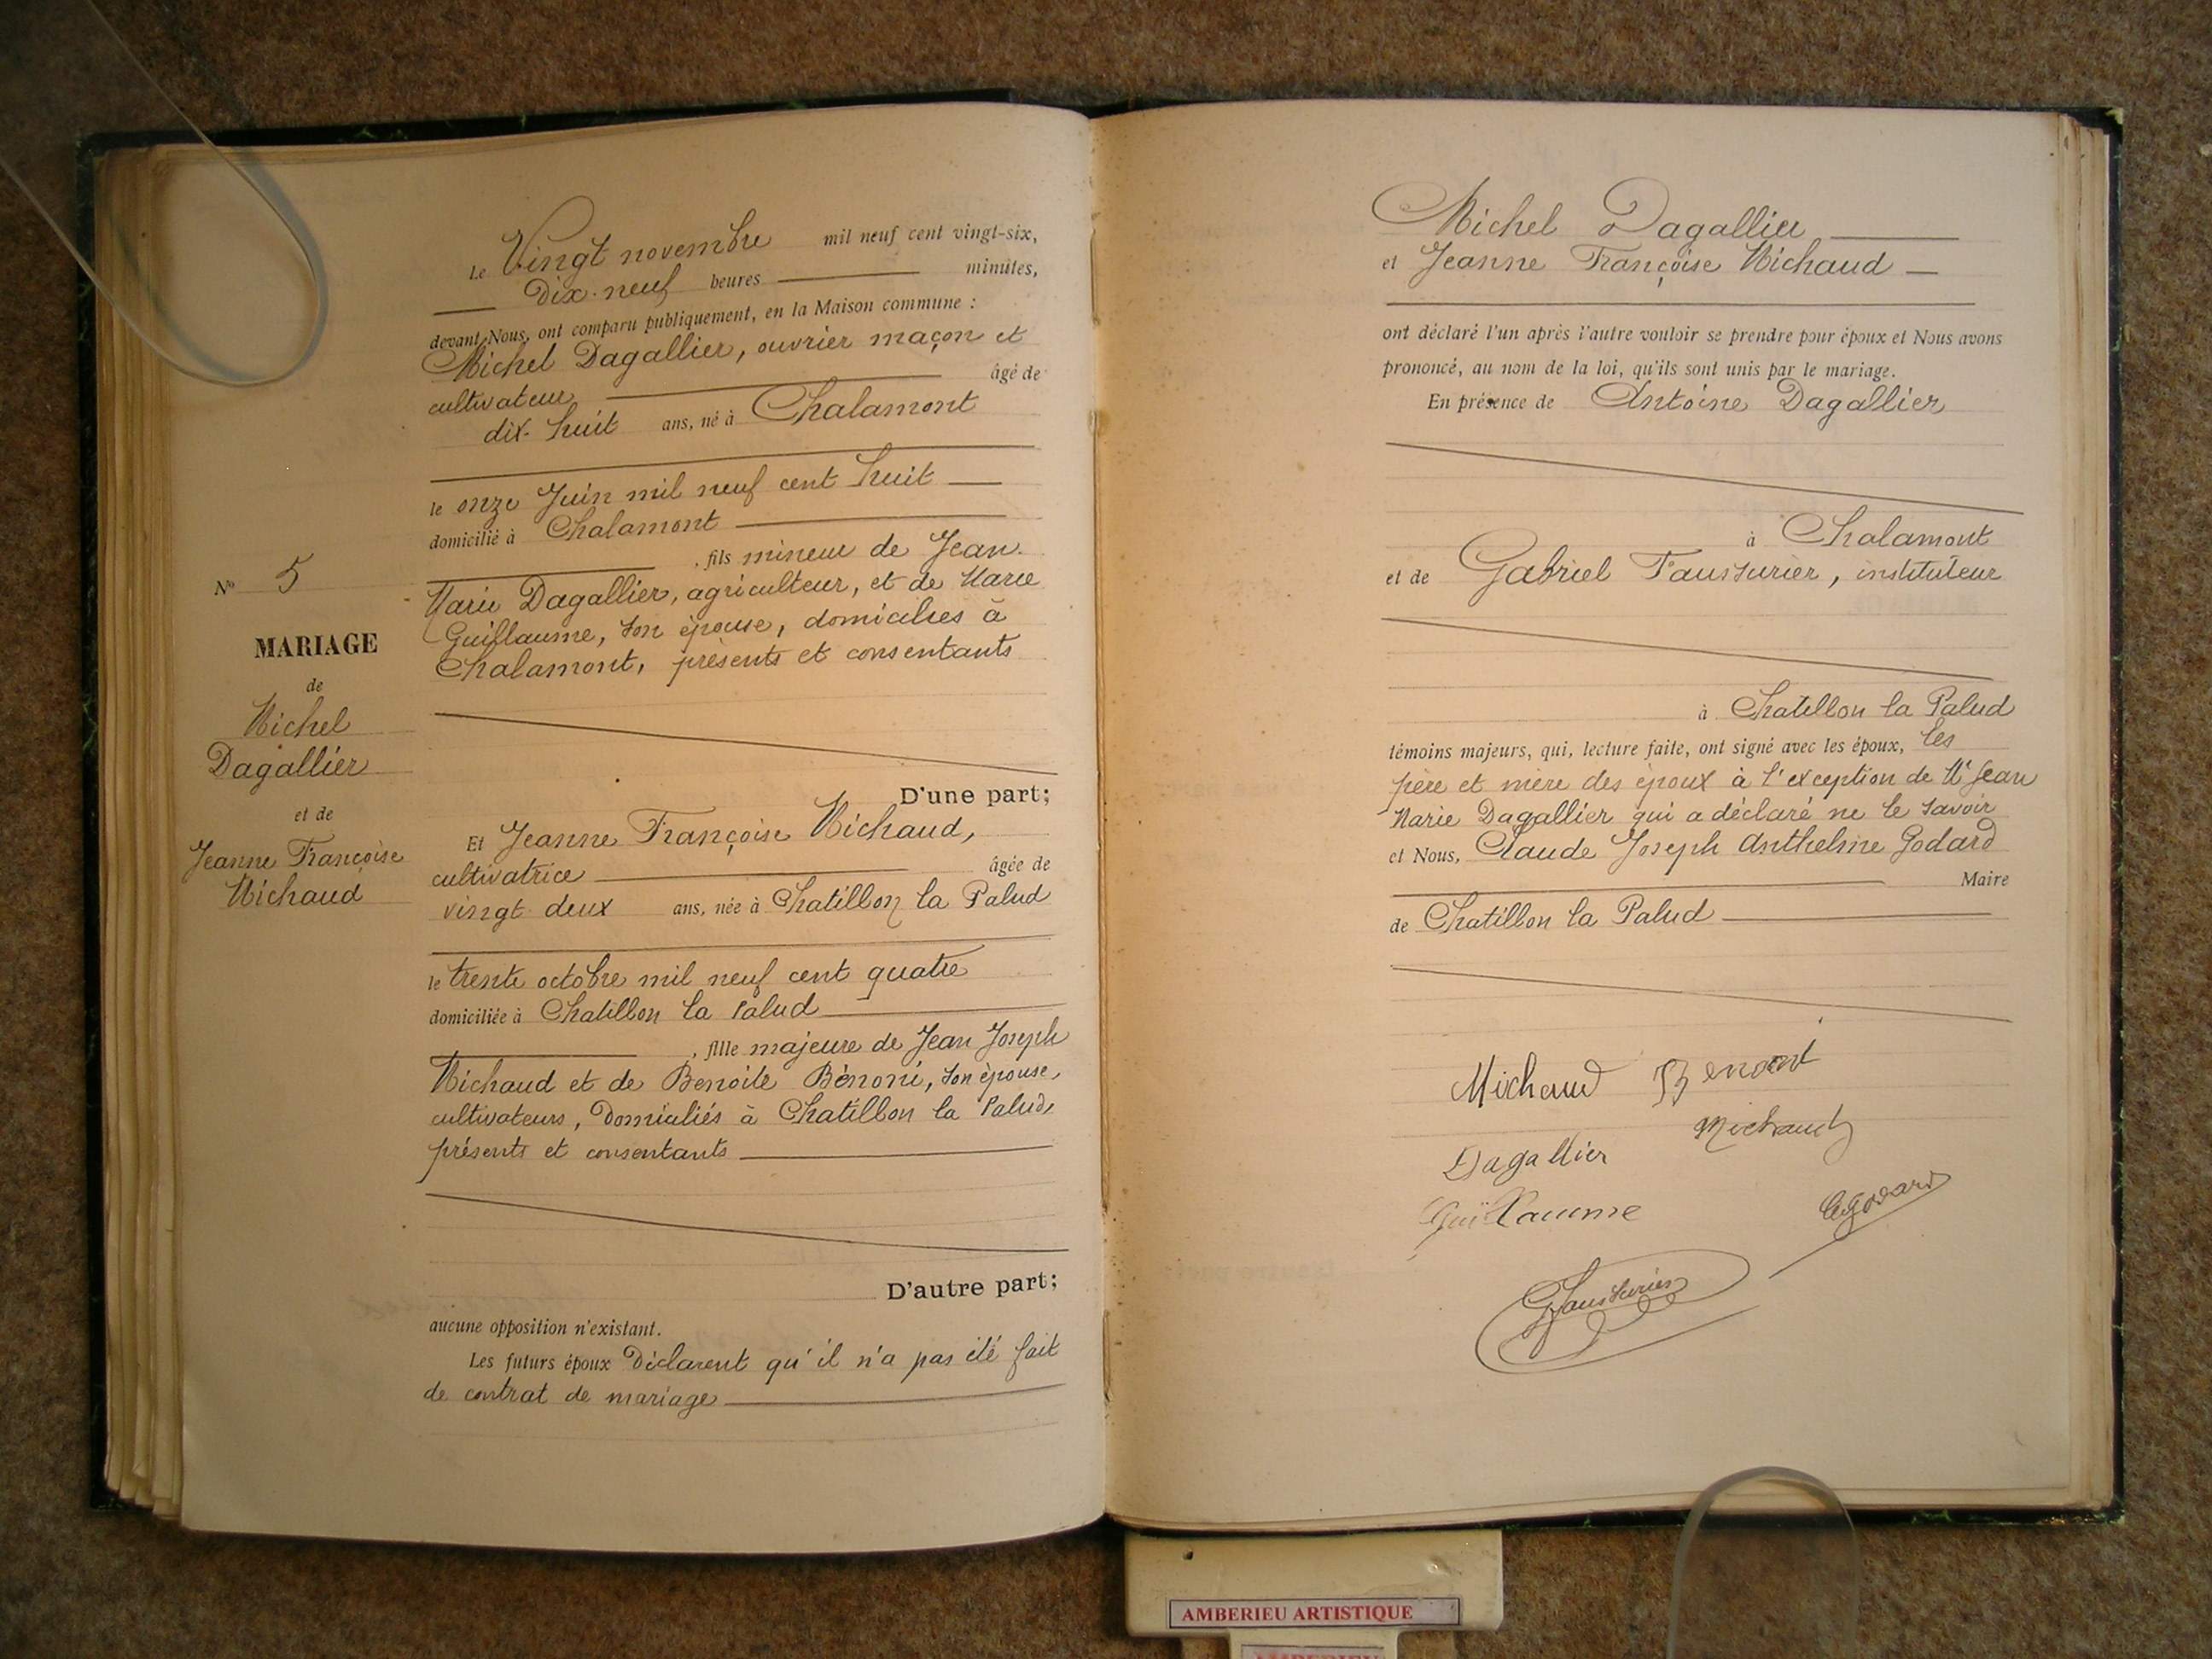 Le Vingt novembre mil neuf cent vingt-six,
Dix-neuf heures minutes,
devant Nous, ont comparu publiquement, en la Maison commune :
Michel Dagallier, ouvrier maçon et
cultivateur âgé de
dix-huit ans, né à Chalamont
le onze Juin mil neuf cent huit
domicilié à Chalamont
, fils mineur de Jean
Marie Dagallier, agriculteur, et de Marie
Guillaume, son épouse, domiciliés à
Chalamont, présents et consentants
No 5
MARIAGE
de
Michel
Dagallier
et de
Jeanne Françoise
Michaud
D'une part;
Et Jeanne Françoise Michaud,
cultivatrice âgée de
vingt deux ans, née à Chatillon la Palud
le trente octobre mil neuf cent quatre
domiciliée à Chatillon la Palud
, fille majeure de Jean Joseph
Michaud et de Benoite Bénoni, son épouse,
cultivateurs, Domiciliés à Chatillon la Palud,
présents et consentants
D'autre part;
aucune opposition n'existant.
Les futurs époux Déclarent qu'il n'a pas été fait
de contrat de mariage
Michel Dagallier
et Jeanne Françoise Michaud
ont déclaré l'un après l'autre vouloir se prendre pour époux et Nous avons
prononcé, au nom de la loi, qu'ils sont unis par le mariage.
En présence de Antoine Dagallier
à Chalamont
et de Gabriel Fausturier, instituteur
à Chatillon la Palud
témoins majeurs, qui, lecture faite, ont signé avec les époux, les
père et mère des époux à l'exception de Mr Jean
Marie Dagallier qui a déclaré ne le savoir
et Nous, Claude Joseph Anthelme Godard
Maire
de Chatillon la Palud
Michaud Benoni
Michaud
Dagallier
Guillaume
Godard
Fausturier
AMBERIEU ARTISTIQUE
AMBERIEU